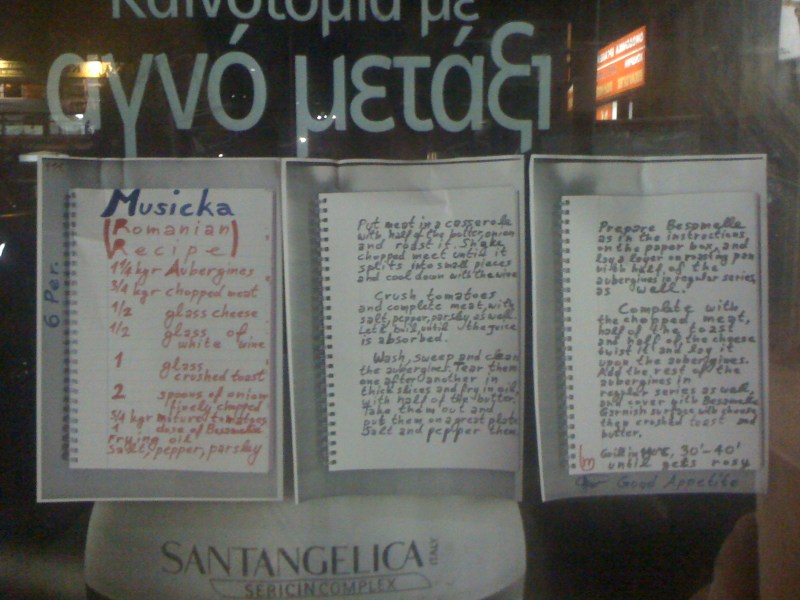 Καινοτομία με
αγνό μετάξι
Musicka
(Romanian
Recipe)
6 Per.
1 1/4 kgr Aubergines
3/4 kgr chopped meat
1/2 glass cheese
1/2 glass of
white wine
1 glass
crushed toast
2 spoons of onion
finely chopped
3/4 kgr mature tomatoes
1 dose of Bessamelle
Frying oil
Salt, pepper, parsley
Put meat in a casserole
with half of the butter, onion
and roast it. Shake
chopped meet until it
splits into small pieces
and cool down with the wine
Crush tomatoes
and complete meat, with
salt, pepper, parsley as well.
Let it boil until the juice
is absorbed.
Wash, sweep and clean
the aubergines. Tear them
one after another in
thick slices and fry in oil,
with half of the butter.
Take them out and
put them on a great plate
Salt and pepper them.
Prepare Besamelle
as in the instructions
on the paper box, and
lay a lower on roasting pan
with half of the
aubergines in regular series,
as well.
Complete with
the chopped meat,
half of the toast
and half of the cheese
twist it and lay it
upon the aubergines.
Add the rest of the
aubergines in
regular series as well,
and cover with Besamelle
Garnish surface with cheese,
then crushed toast and
butter.
Grill in 30'-40'
until gets rosy
Good Appetite
SANTANGELICA
ITALY
SERICIN COMPLEX